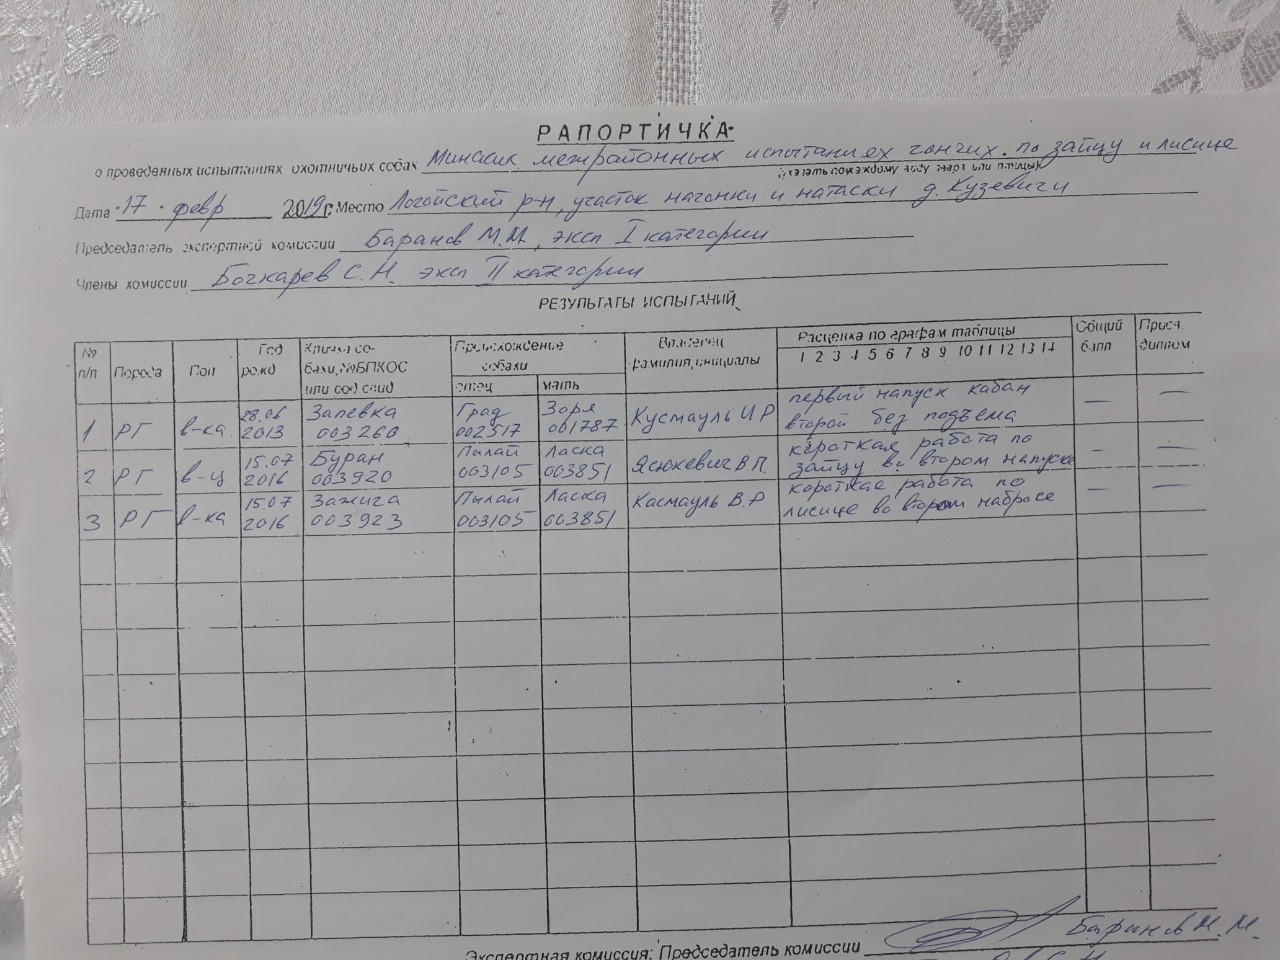 РАПОРТИЧКА
о проведенных испытаниях охотничьих собак Минских межрайонных испытаниях гончих. по зайцу и лисице
(указать по каждому виду зверя или птицы)
Дата 17 февр 2019 г. Место Логойский р-н, участок нагонки и натаски д. Кузевичи
Председатель экспертной комиссии Баранов М.М., эксп I категории
Члены комиссии Бочкарев С.Н. эксп II категории
РЕЗУЛЬТАТЫ ИСПЫТАНИЙ
№ п/п Порода Пол Год рожд Кличка собаки, №БПКОС или свод свид Происхождение собаки отец мать Владелец фамилия, инициалы Расценка по графам таблицы 1 2 3 4 5 6 7 8 9 10 11 12 13 14 Общий балл Прися. диплом
1 РГ в-ка 28.06 2013 Запевка 003260 Град 002517 Зоря 001787 Кусмауль И.Р первый напуск кабан второй без подъема — —
2 РГ в-ц 15.07 2016 Буран 003920 Пылай 003105 Ласка 003851 Ясюкевич В.П. короткая работа по зайцу во втором напуске — —
3 РГ в-ка 15.07 2016 Зажига 003923 Пылай 003105 Ласка 003851 Касмауль В.Р короткае работа по лисице во втором набросе — —
Экспертная комиссия: Председатель комиссии Баранов М.М.